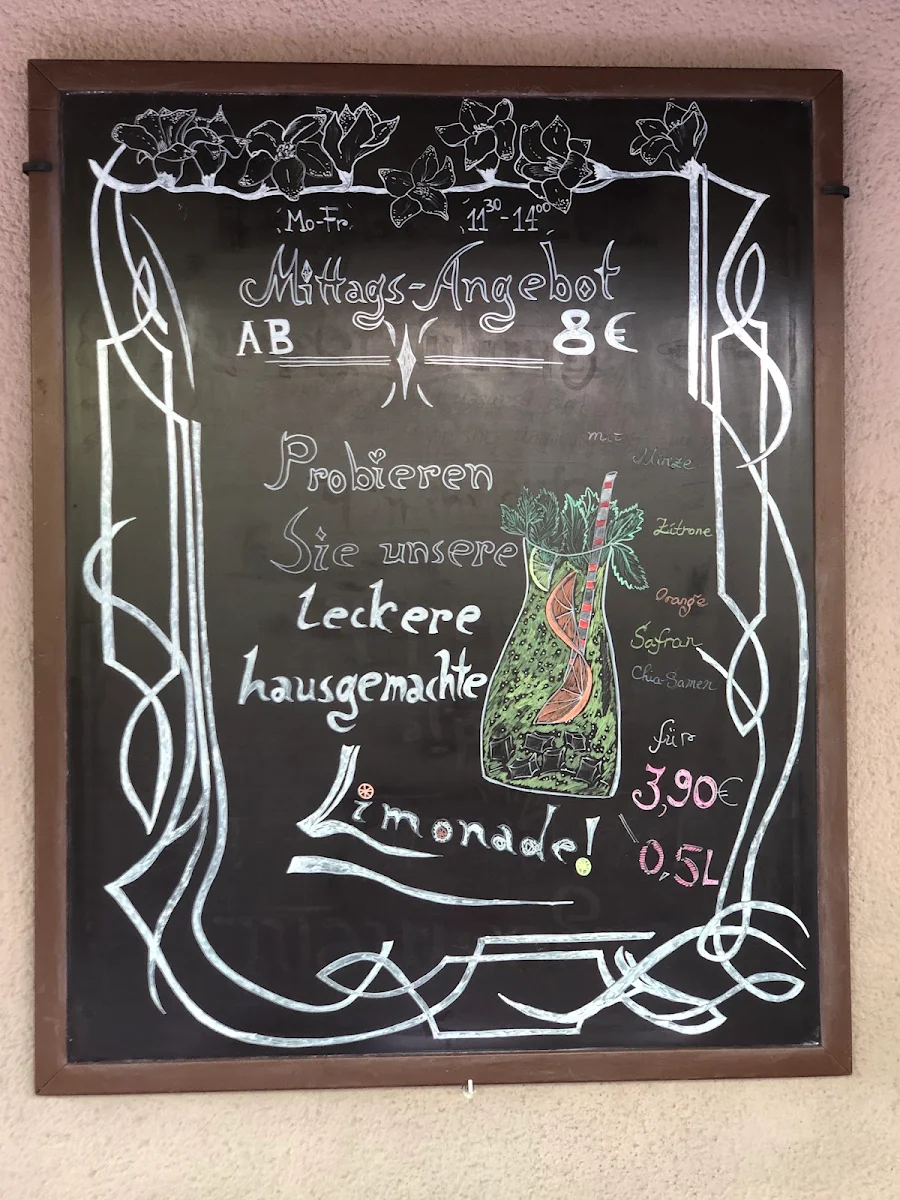 Mo-Fr. 11³⁰-14⁰⁰
Mittags-Angebot
AB 8€
Probieren
Sie unsere
leckere
hausgemachte
Limonade!
mit
Minze
Zitrone
Orange
Safran
Chia-Samen
für
3,90€
0,5L